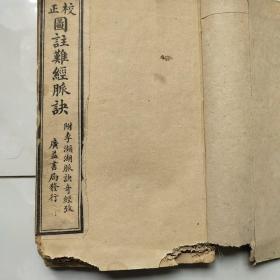 校正
圖註難經脈訣
附李瀕湖脈訣奇經攷
廣益書局發行